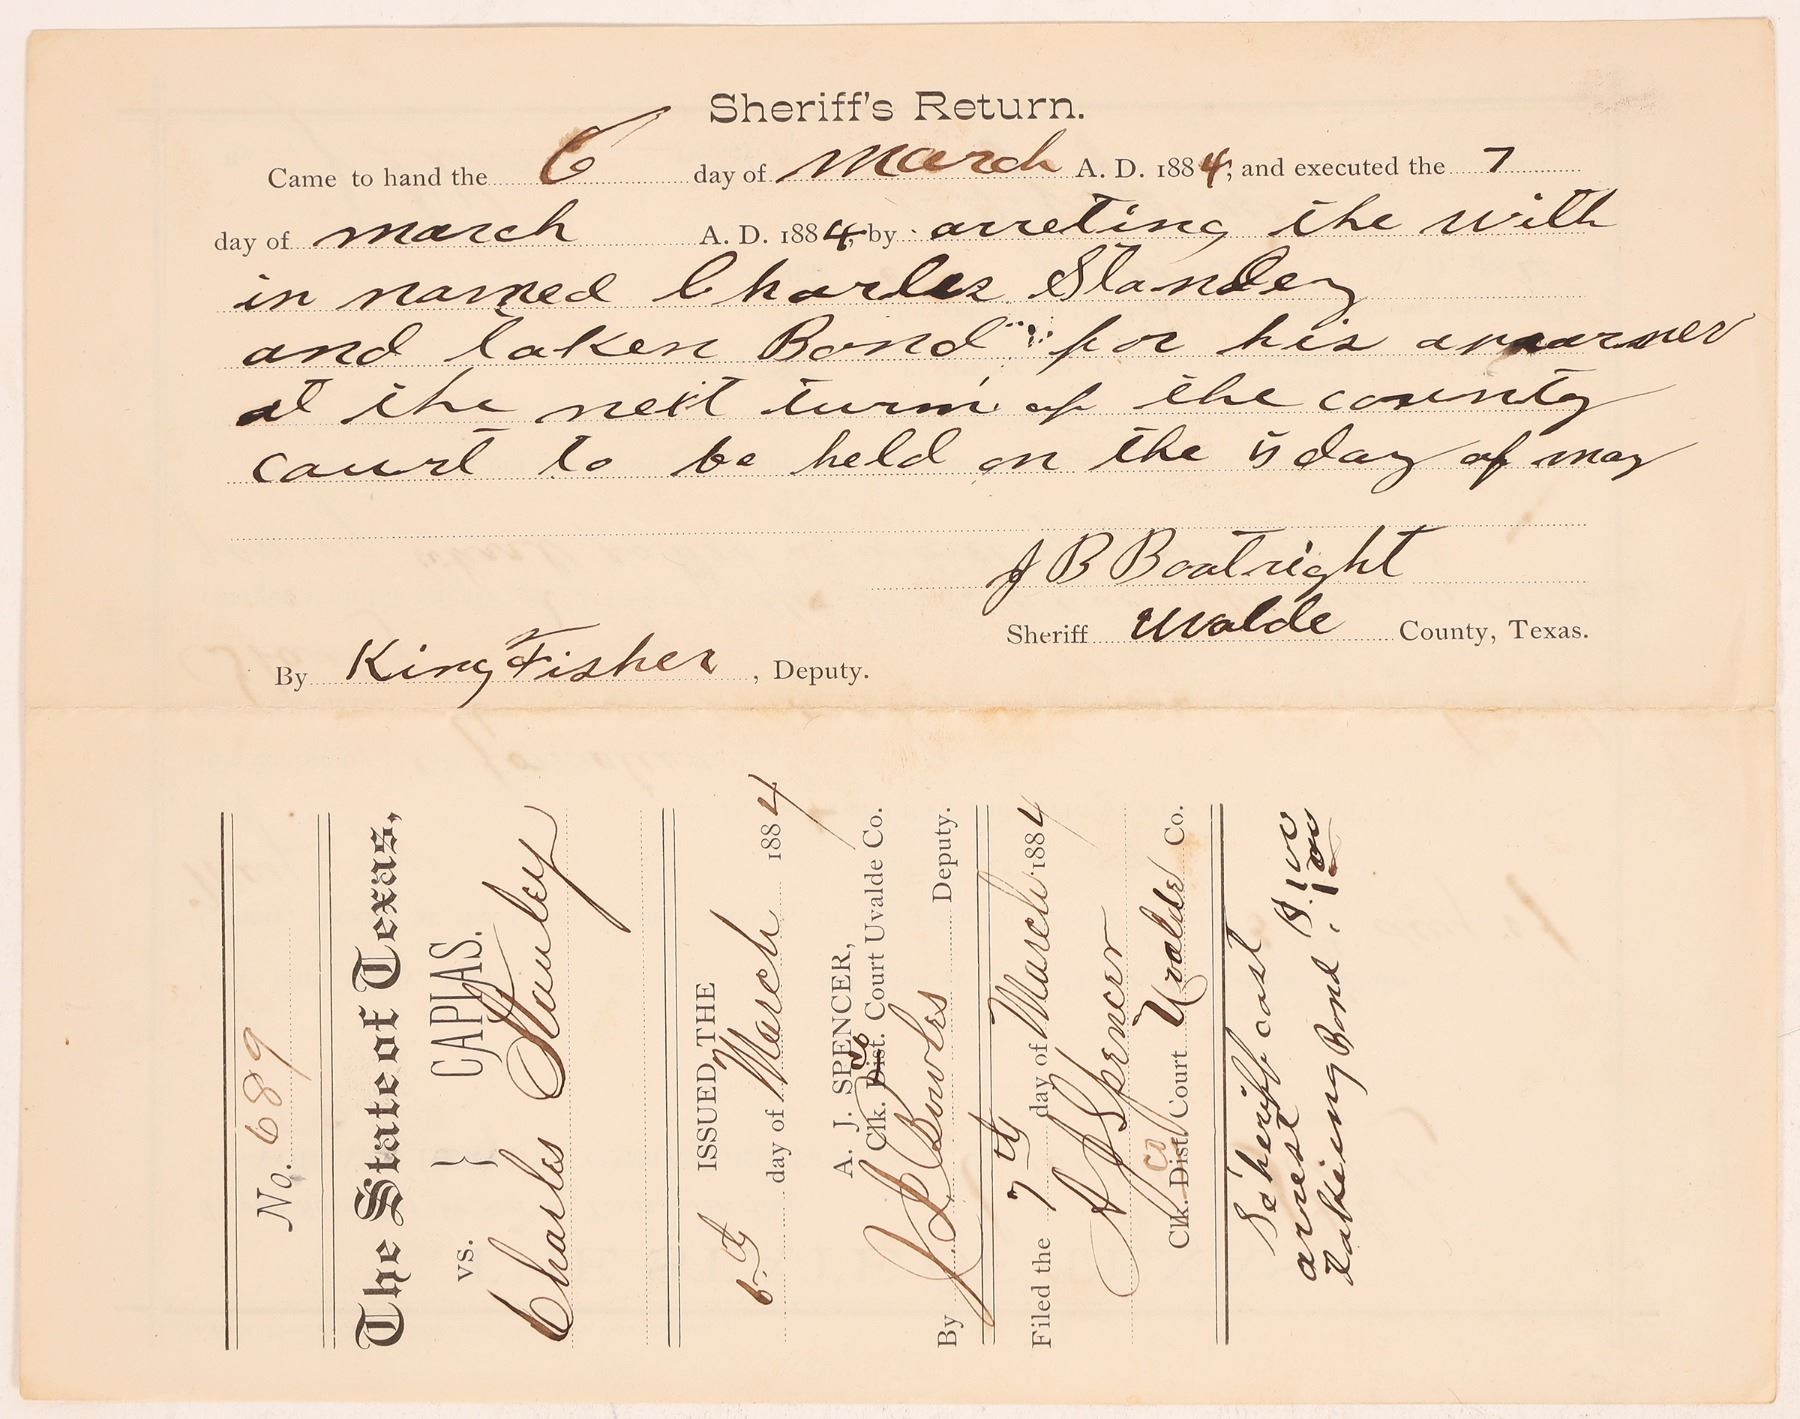 Sheriff's Return.
Came to hand the 6 day of March A. D. 1884, and executed the 7
day of march A. D. 1884, by arreting the with
in named Charles Standley
and taken Bond for his
at the next turm of the county
court to be held on the 5 day of may
J B Boatright
Sheriff Uvalde County, Texas.
By King Fisher, Deputy.
No. 689
The State of Texas,
vs. } CAPIAS.
Charles Stanley
ISSUED THE
6th day of March 1884
A. J. SPENCER,
Clk. Dist. Co Court Uvalde Co.
By J L Bowles Deputy.
Filed the 7th day of March 1884
A J Spencer
Clk. Dist Co Court Uvalde Co.
Scheriff cost
arrest $. 1 00
Takeing Bond . 1 00